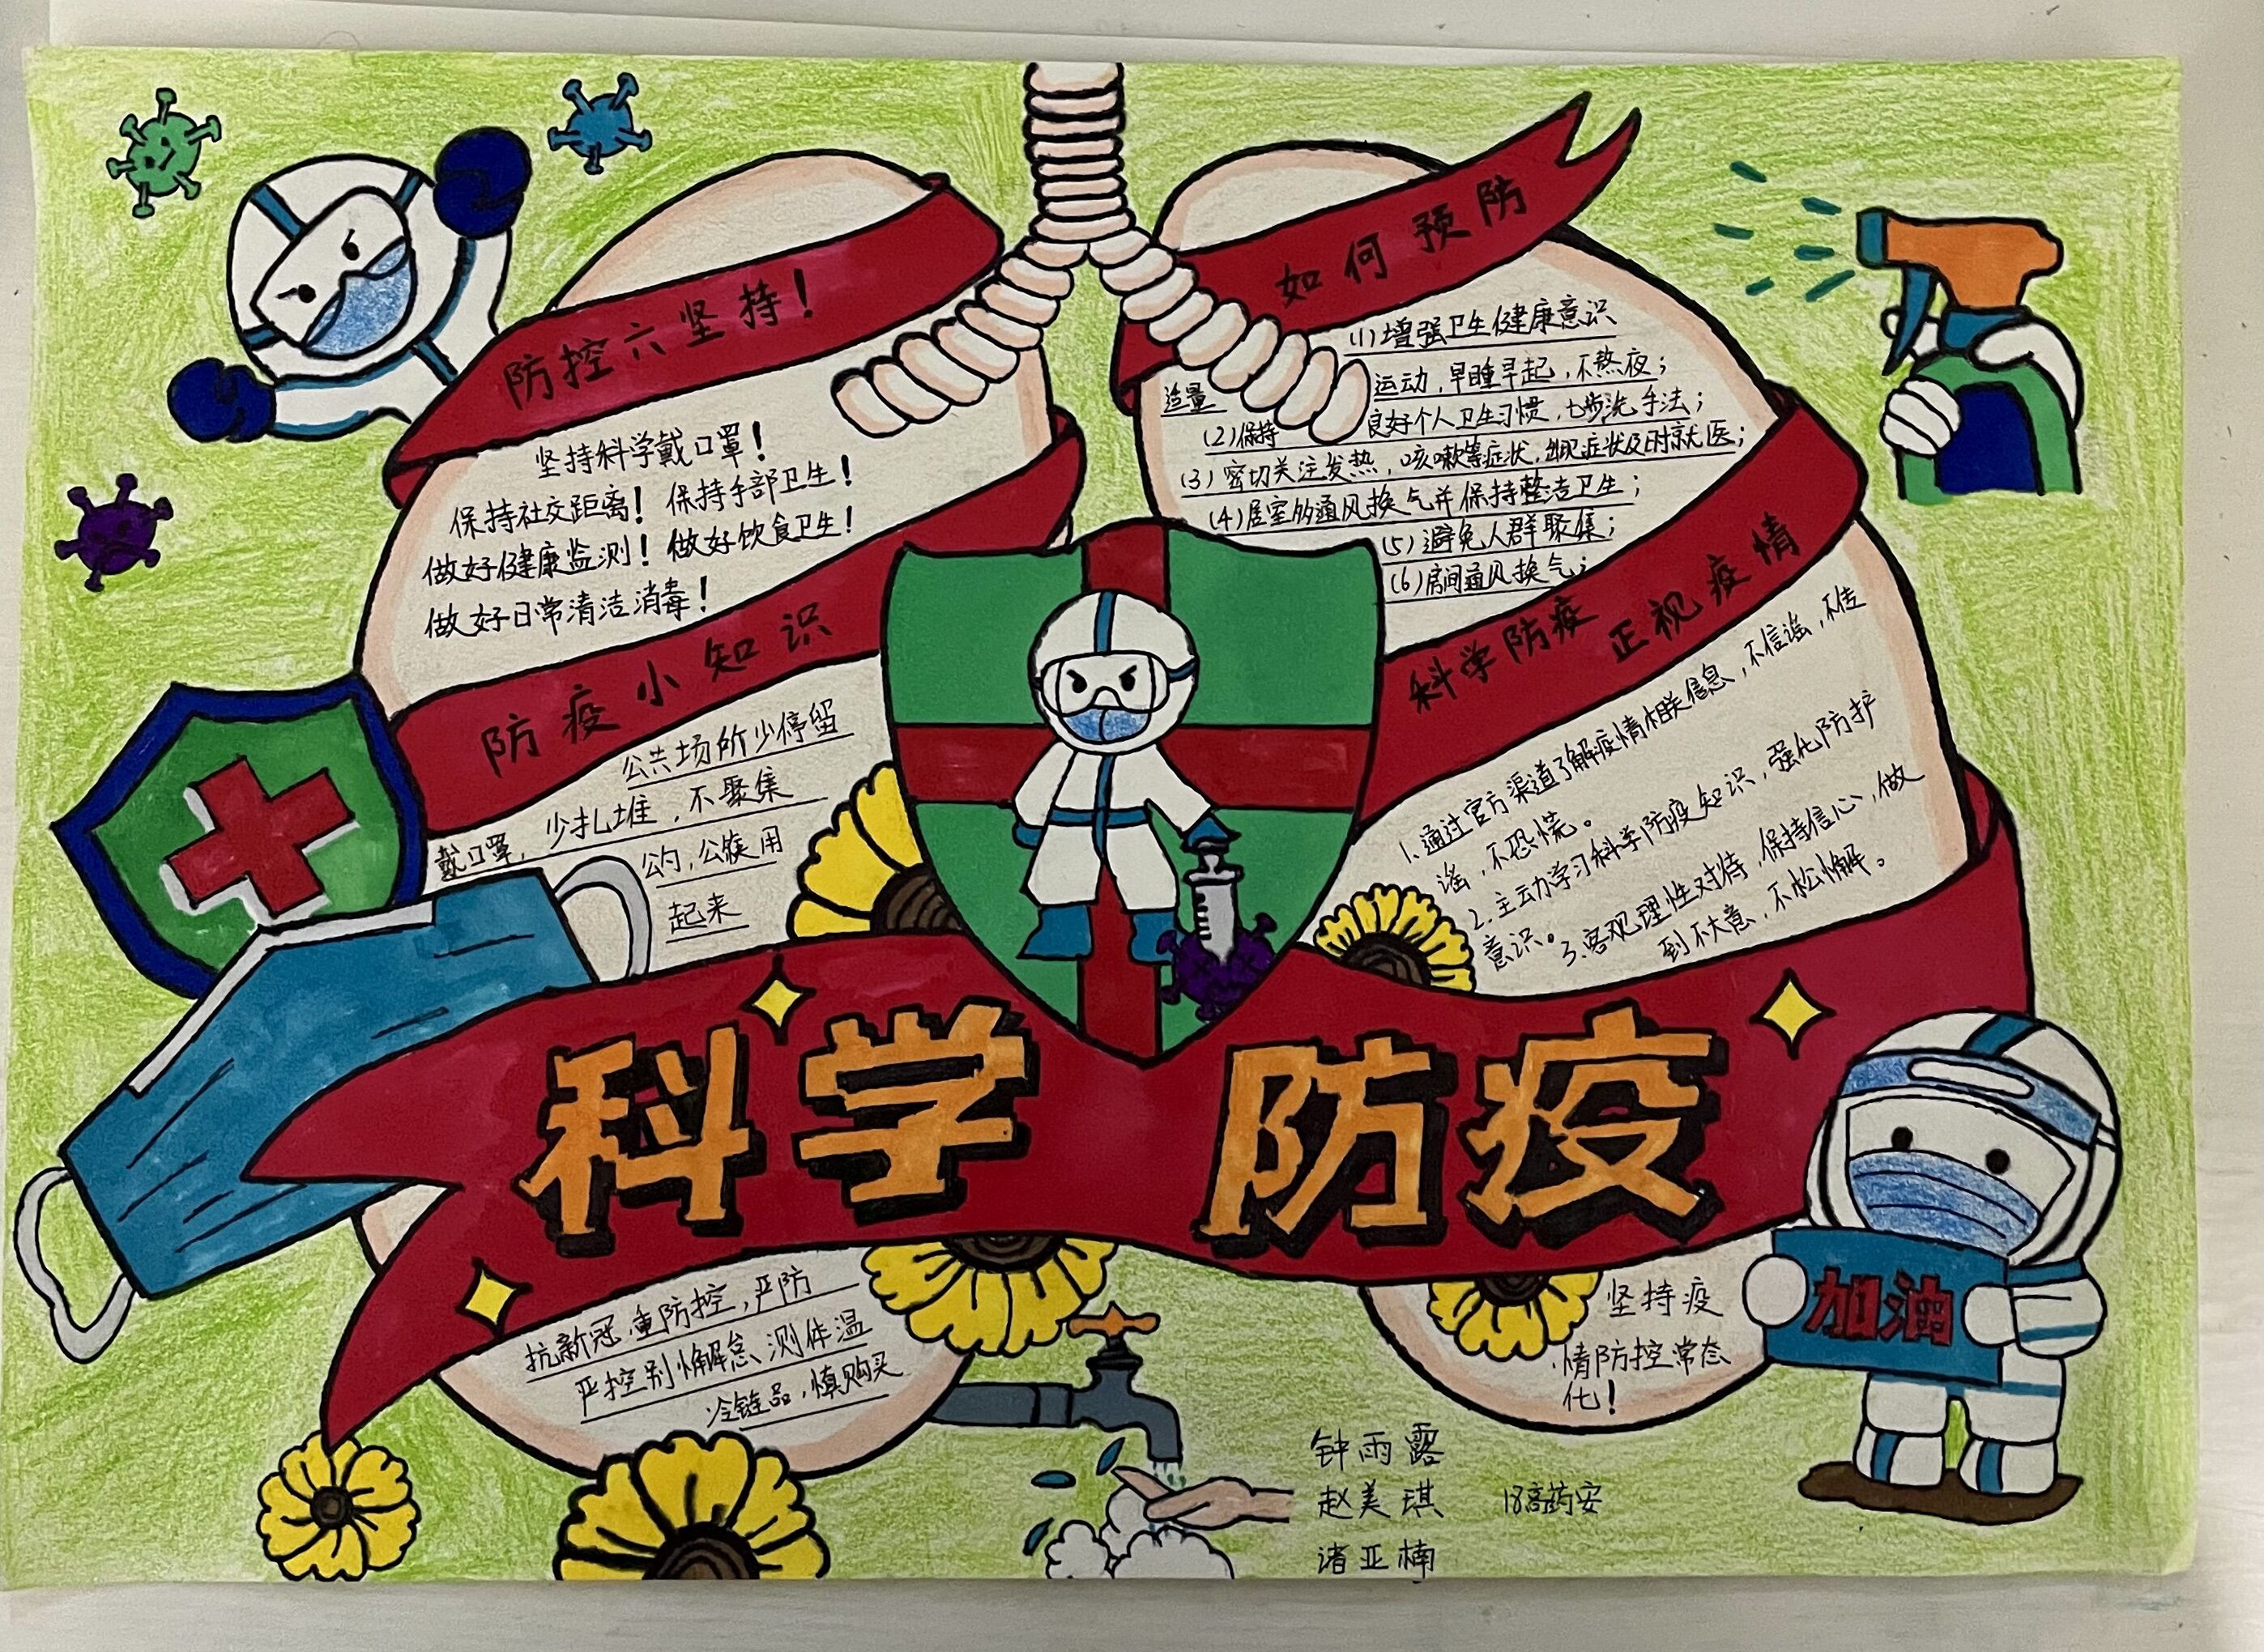 防控六坚持！
坚持科学戴口罩！
保持社交距离！保持手部卫生！
做好健康监测！做好饮食卫生！
做好日常清洁消毒！
防疫小知识
公共场所少停留
戴口罩，少扎堆，不聚集
公勺，公筷用
起来
如何预防
(1)增强卫生健康意识
适量运动，早睡早起，不熬夜；
(2)保持良好个人卫生习惯，七步洗手法；
(3)密切关注发热，咳嗽等症状，出现症状及时就医；
(4)居室多通风换气并保持整洁卫生；
(5)避免人群聚集；
(6)房间通风换气；
科学防疫 正视疫情
1.通过官方渠道了解疫情相关信息，不信谣，不传
谣，不恐慌。
2.主动学习科学防疫知识，强化防护
意识。
3.客观理性对待，保持信心，做
到不大意，不松懈。
科学防疫
抗新冠，重防控，严防
严控别懈怠，测体温
冷链品，慎购买
坚持疫
情防控常态
化！
加油
钟雨露
赵美琪 18高药安
诸亚楠